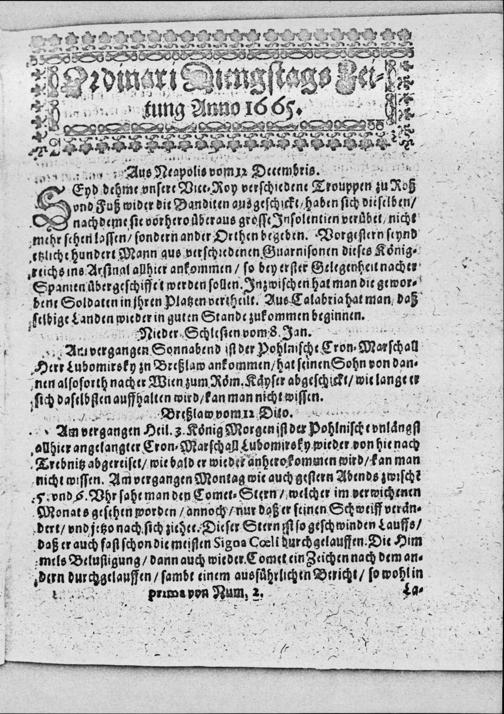 Ordinari Dienstags Zei-
tung Anno 1665.
Aus Neapolis vom 12 Decembris.
SEyd dehme unsere Vice-Roy verschiedene Trouppen zu Roß
vnd Fuß wider die Banditen ausgeschickt/ haben sich dieselben/
nachdeme sie vorhero überaus grosse Insolentien verübet/ nicht
mehr sehen lassen/ sondern an der Orthen begeben. Vorgestern seynd
etzliche hundert Mann aus verschiedenen Guarnisonen dieses König-
reichs ins Arsenal allhier ankommen/ so bey erster Gelegenheit nacher
Spanien übergeschifft werden sollen. Inzwischen hat man die gewor-
bene Soldaten in jhren Platzen vertheilt. Aus Calabria hat man/ daß
selbige Landen wieder in guten Stande zu kommen beginnen.
Nieder-Schlesien vom 8. Jan.
Am vergangen Sonnabend ist der Pohlnische Cron-Marschall
Herr Lubomirsky zu Breßlaw ankommen/ hat seinen Sohn von dan-
nen alsoforth nacher Wien zum Röm. Käyser abgeschickt/ wie lange er
sich daselbsten auffhalten wird/ kan man nicht wissen.
Breßlaw vom 12 Dito.
Am vergangen Heil. 3. König Morgen ist der Pohlnische vnlängst
allhier angelangter Cron-Marschall Lubomirsky wieder von hie nach
Trebnitz abgereiset/ wie bald er wieder anhero kommen wird/ kan man
nicht wissen. Am vergangen Montag wie auch gestern Abends zwischē
5. vnd 6. Vhr sahe man den Comet-Stern/ welcher im verwichenen
Monats gesehen worden/ annoch/ nur daß er seinen Schweiff verän-
dert/ vnd jetzo nach sich ziehet. Dieser Stern ist so geschwinden Lauffs/
daß er auch fast schon die meisten Signa Cœli durchgelauffen. Die Him
mels Belustigung/ dann auch wieder Comet ein Zeichen nach dem an-
dern durchgelauffen/ sambt einem ausführlichen Bericht/ so wohl in
prima von Num. 2. La-